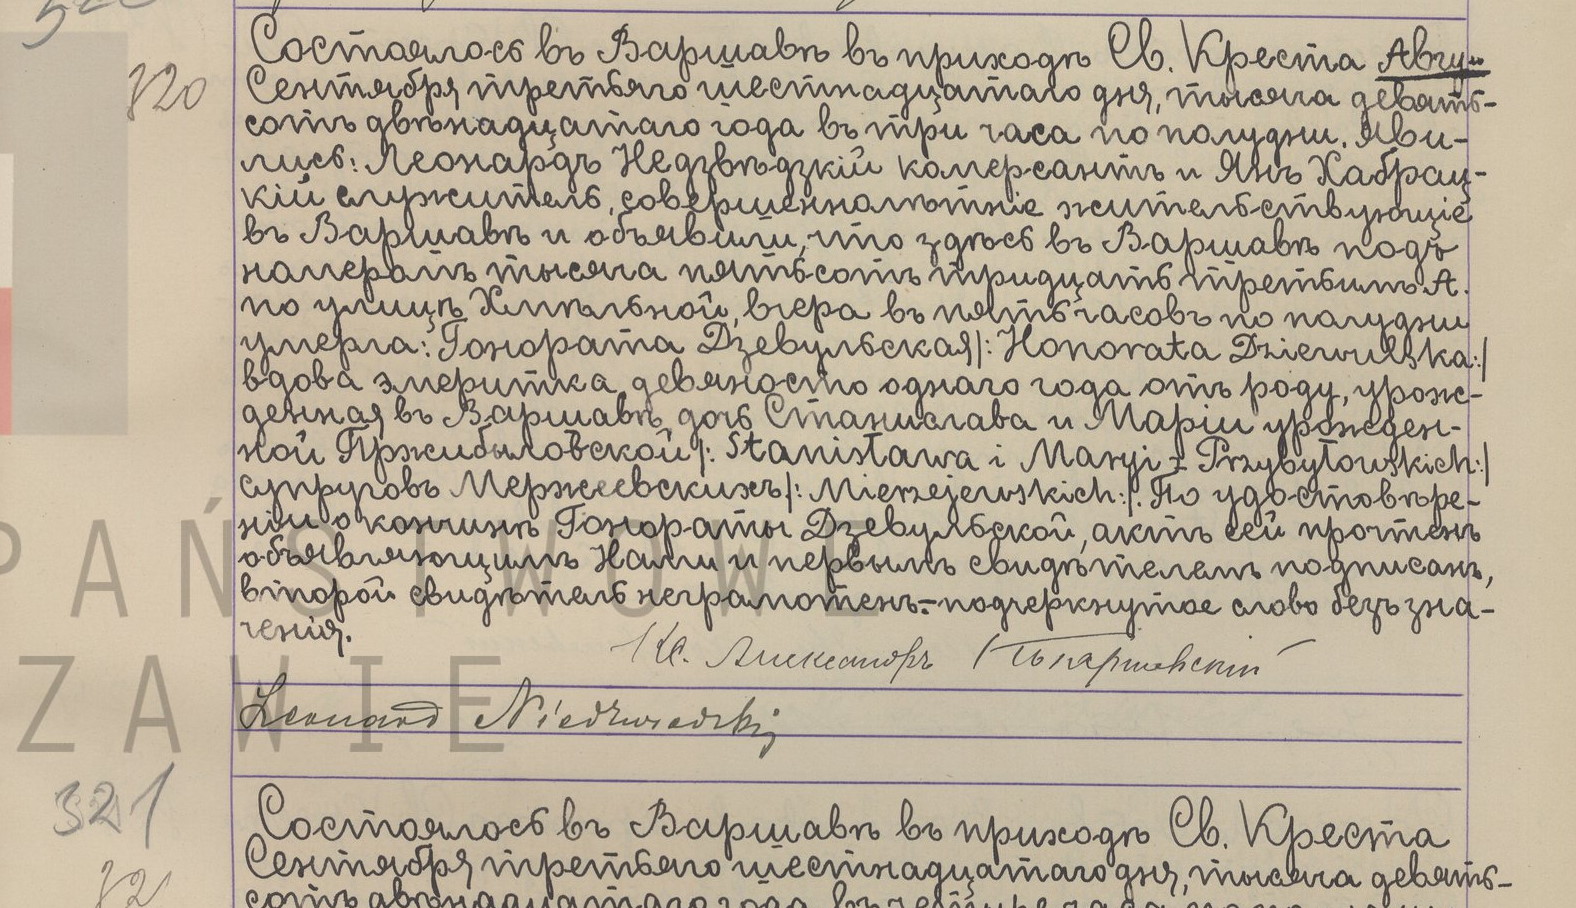 820
Состоялось въ Варшавѣ въ приходѣ Св. Креста Авгу-
Сентября третьяго шестнадцатаго дня, тысяча девять-
сотъ двѣнадцатаго года въ три часа по полудни. Яви-
лись: Леонардъ Недзвѣдзкій комерсантъ и Янъ Хабрац-
кій служитель, совершеннолѣтніе жительствующіе
въ Варшавѣ и объявили, что здѣсь въ Варшавѣ подъ
номеромъ тысяча пятьсотъ тридцать третьимъ А.
по улицѣ Хмѣльной, вчера въ пять часовъ по полудни
умерла: Гонората Дзевульская/: Honorata Dziewulska:/
вдова эмеритка, девяносто однаго года отъ роду, урож-
денная въ Варшавѣ, дочь Станислава и Маріи урожден-
ной Пржибыловской/: Stanisława i Maryi z Przybyłowskich:/
супруговъ Мержеевскихъ/: Mierzejewskich:/. По удостовѣре-
ніи о кончинѣ Гонораты Дзевульской, актъ сей прочтенъ
объявляющимъ Нами и первымъ свидѣтелемъ подписанъ,
второй свидѣтель неграмотенъ.-подчеркнутое слово безъ зна-
ченія.
Кс. Александръ
Leonard Niedzwiedzki
PAŃSTWOWE
ZAWIE
321
82
Состоялось въ Варшавѣ въ приходѣ Св. Креста
Сентября третьяго шестнадцатаго дня, тысяча девять-
сотъ двѣнадцатаго года въ четыре часа по